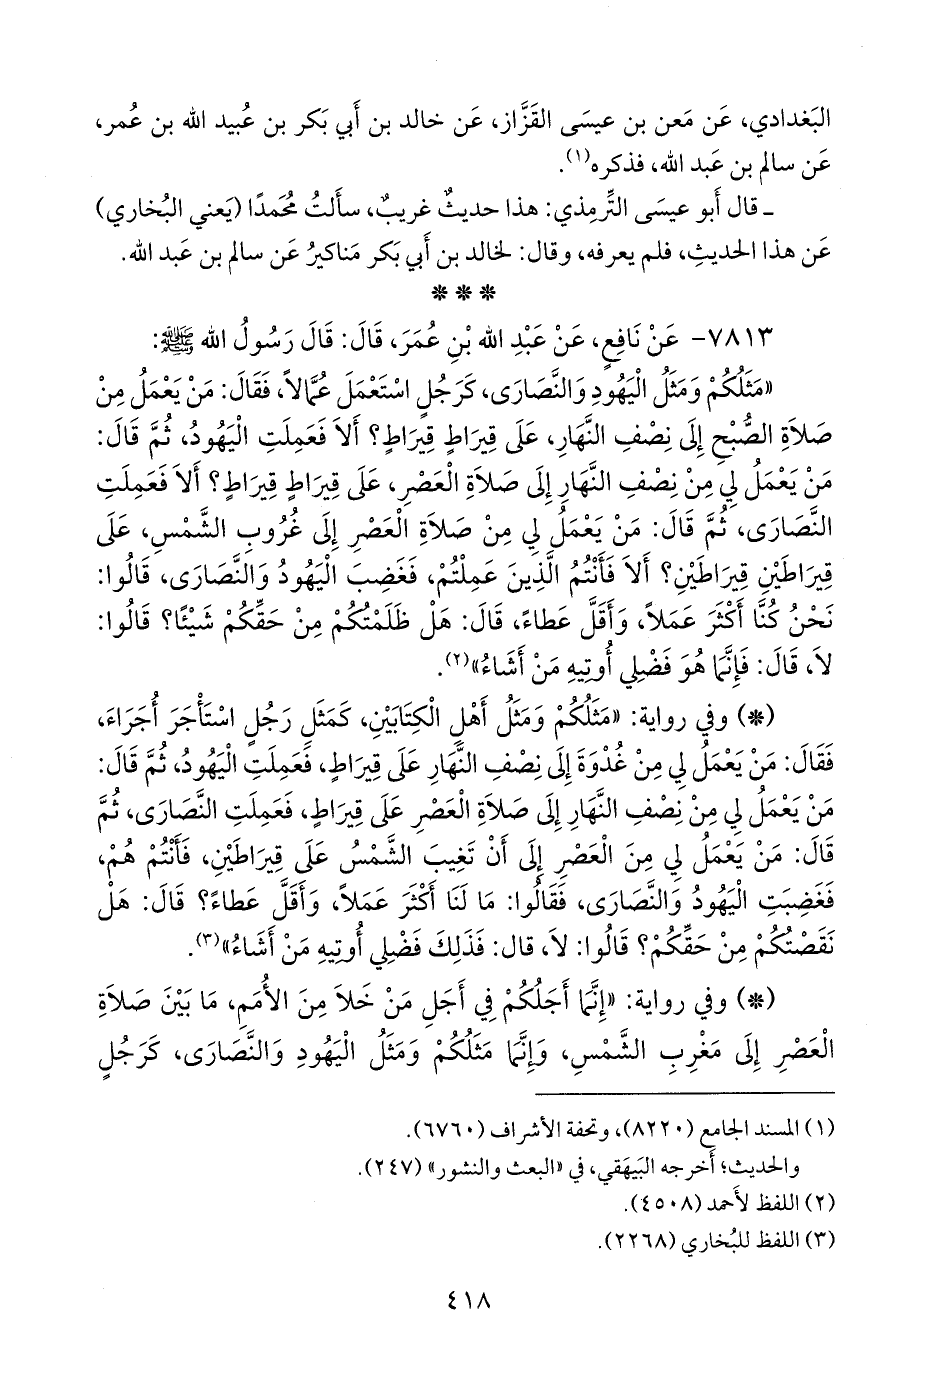 البَغدادي، عَن مَعن بن عيسَى القَزَّاز، عَن خالد بن أَبي بَكر بن عُبيد الله بن عُمر،
عَن سالم بن عَبد الله، فذكره(١).
ـ قال أَبو عيسَى التِّرمِذي: هذا حديثٌ غريبٌ، سأَلتُ مُحمدًا (يَعني البُخاري)
عَن هذا الحديثِ، فلم يعرفه، وقال: لخالد بن أَبي بَكر مَناكيرُ عَن سالم بن عَبد الله.
* * *
٧٨١٣- عَنْ نَافِعٍ، عَنْ عَبْدِ الله بْنِ عُمَرَ، قَالَ: قَالَ رَسُولُ الله ﷺ:
«مَثَلُكُمْ وَمَثَلُ الْيَهُودِ وَالنَّصَارَى، كَرَجُلٍ اسْتَعْمَلَ عُمَّالاً، فَقَالَ: مَنْ يَعْمَلُ مِنْ
صَلاَةِ الصُّبْحِ إِلَى نِصْفِ النَّهَارِ، عَلَى قِيرَاطٍ قِيرَاطٍ؟ أَلاَ فَعَمِلَتِ الْيَهُودُ، ثُمَّ قَالَ:
مَنْ يَعْمَلُ لِي مِنْ نِصْفِ النَّهَارِ إِلَى صَلاَةِ الْعَصْرِ، عَلَى قِيرَاطٍ قِيرَاطٍ؟ أَلاَ فَعَمِلَتِ
النَّصَارَى، ثُمَّ قَالَ: مَنْ يَعْمَلُ لِي مِنْ صَلاَةِ الْعَصْرِ إِلَى غُرُوبِ الشَّمْسِ، عَلَى
قِيرَاطَيْنِ قِيرَاطَيْنِ؟ أَلاَ فَأَنْتُمُ الَّذِينَ عَمِلْتُمْ، فَغَضِبَ الْيَهُودُ وَالنَّصَارَى، قَالُوا:
نَحْنُ كُنَّا أَكْثَرَ عَمَلاً، وَأَقَلَّ عَطاءً، قَالَ: هَلْ ظَلَمْتُكُمْ مِنْ حَقِّكُمْ شَيْئًا؟ قَالُوا:
لاَ، قَالَ: فَإِنَّمَا هُوَ فَضْلِي أُوتِيهِ مَنْ أَشَاءُ»(٢).
(*) وفي رواية: «مَثَلُكُمْ وَمَثَلُ أَهْلِ الْكِتَابَيْنِ، كَمَثَلِ رَجُلٍ اسْتَأْجَرَ أُجَرَاءَ،
فَقَالَ: مَنْ يَعْمَلُ لِي مِنْ غُدْوَةَ إِلَى نِصْفِ النَّهَارِ عَلَى قِيرَاطٍ، فَعَمِلَتِ الْيَهُودُ، ثُمَّ قَالَ:
مَنْ يَعْمَلُ لِي مِنْ نِصْفِ النَّهَارِ إِلَى صَلاَةِ الْعَصْرِ عَلَى قِيرَاطٍ، فَعَمِلَتِ النَّصَارَى، ثُمَّ
قَالَ: مَنْ يَعْمَلُ لِي مِنَ الْعَصْرِ إِلَى أَنْ تَغِيبَ الشَّمْسُ عَلَى قِيرَاطَيْنِ، فَأَنْتُمْ هُمْ،
فَغَضِبَتِ الْيَهُودُ وَالنَّصَارَى، فَقَالُوا: مَا لَنَا أَكْثَرَ عَمَلاً، وَأَقَلَّ عَطاءً؟ قَالَ: هَلْ
نَقَصْتُكُمْ مِنْ حَقِّكُمْ؟ قَالُوا: لاَ، قال: فَذَلِكَ فَضْلِي أُوتِيهِ مَنْ أَشَاءُ»(٣).
(*) وفي رواية: «إِنَّمَا أَجَلُكُمْ فِي أَجَلِ مَنْ خَلاَ مِنَ الأُمَمِ، مَا بَيْنَ صَلاَةِ
الْعَصْرِ إِلَى مَغْرِبِ الشَّمْسِ، وَإِنَّمَا مَثَلُكُمْ وَمَثَلُ الْيَهُودِ وَالنَّصَارَى، كَرَجُلٍ
(١) المسند الجامع (٨٢٢٠)، وتحفة الأشراف (٦٧٦٠).
والحديث؛ أَخرجه البَيهَقي، في «البعث والنشور» (٢٤٧).
(٢) اللفظ لأَحمد (٤٥٠٨).
(٣) اللفظ للبُخاري (٢٢٦٨).
٤١٨